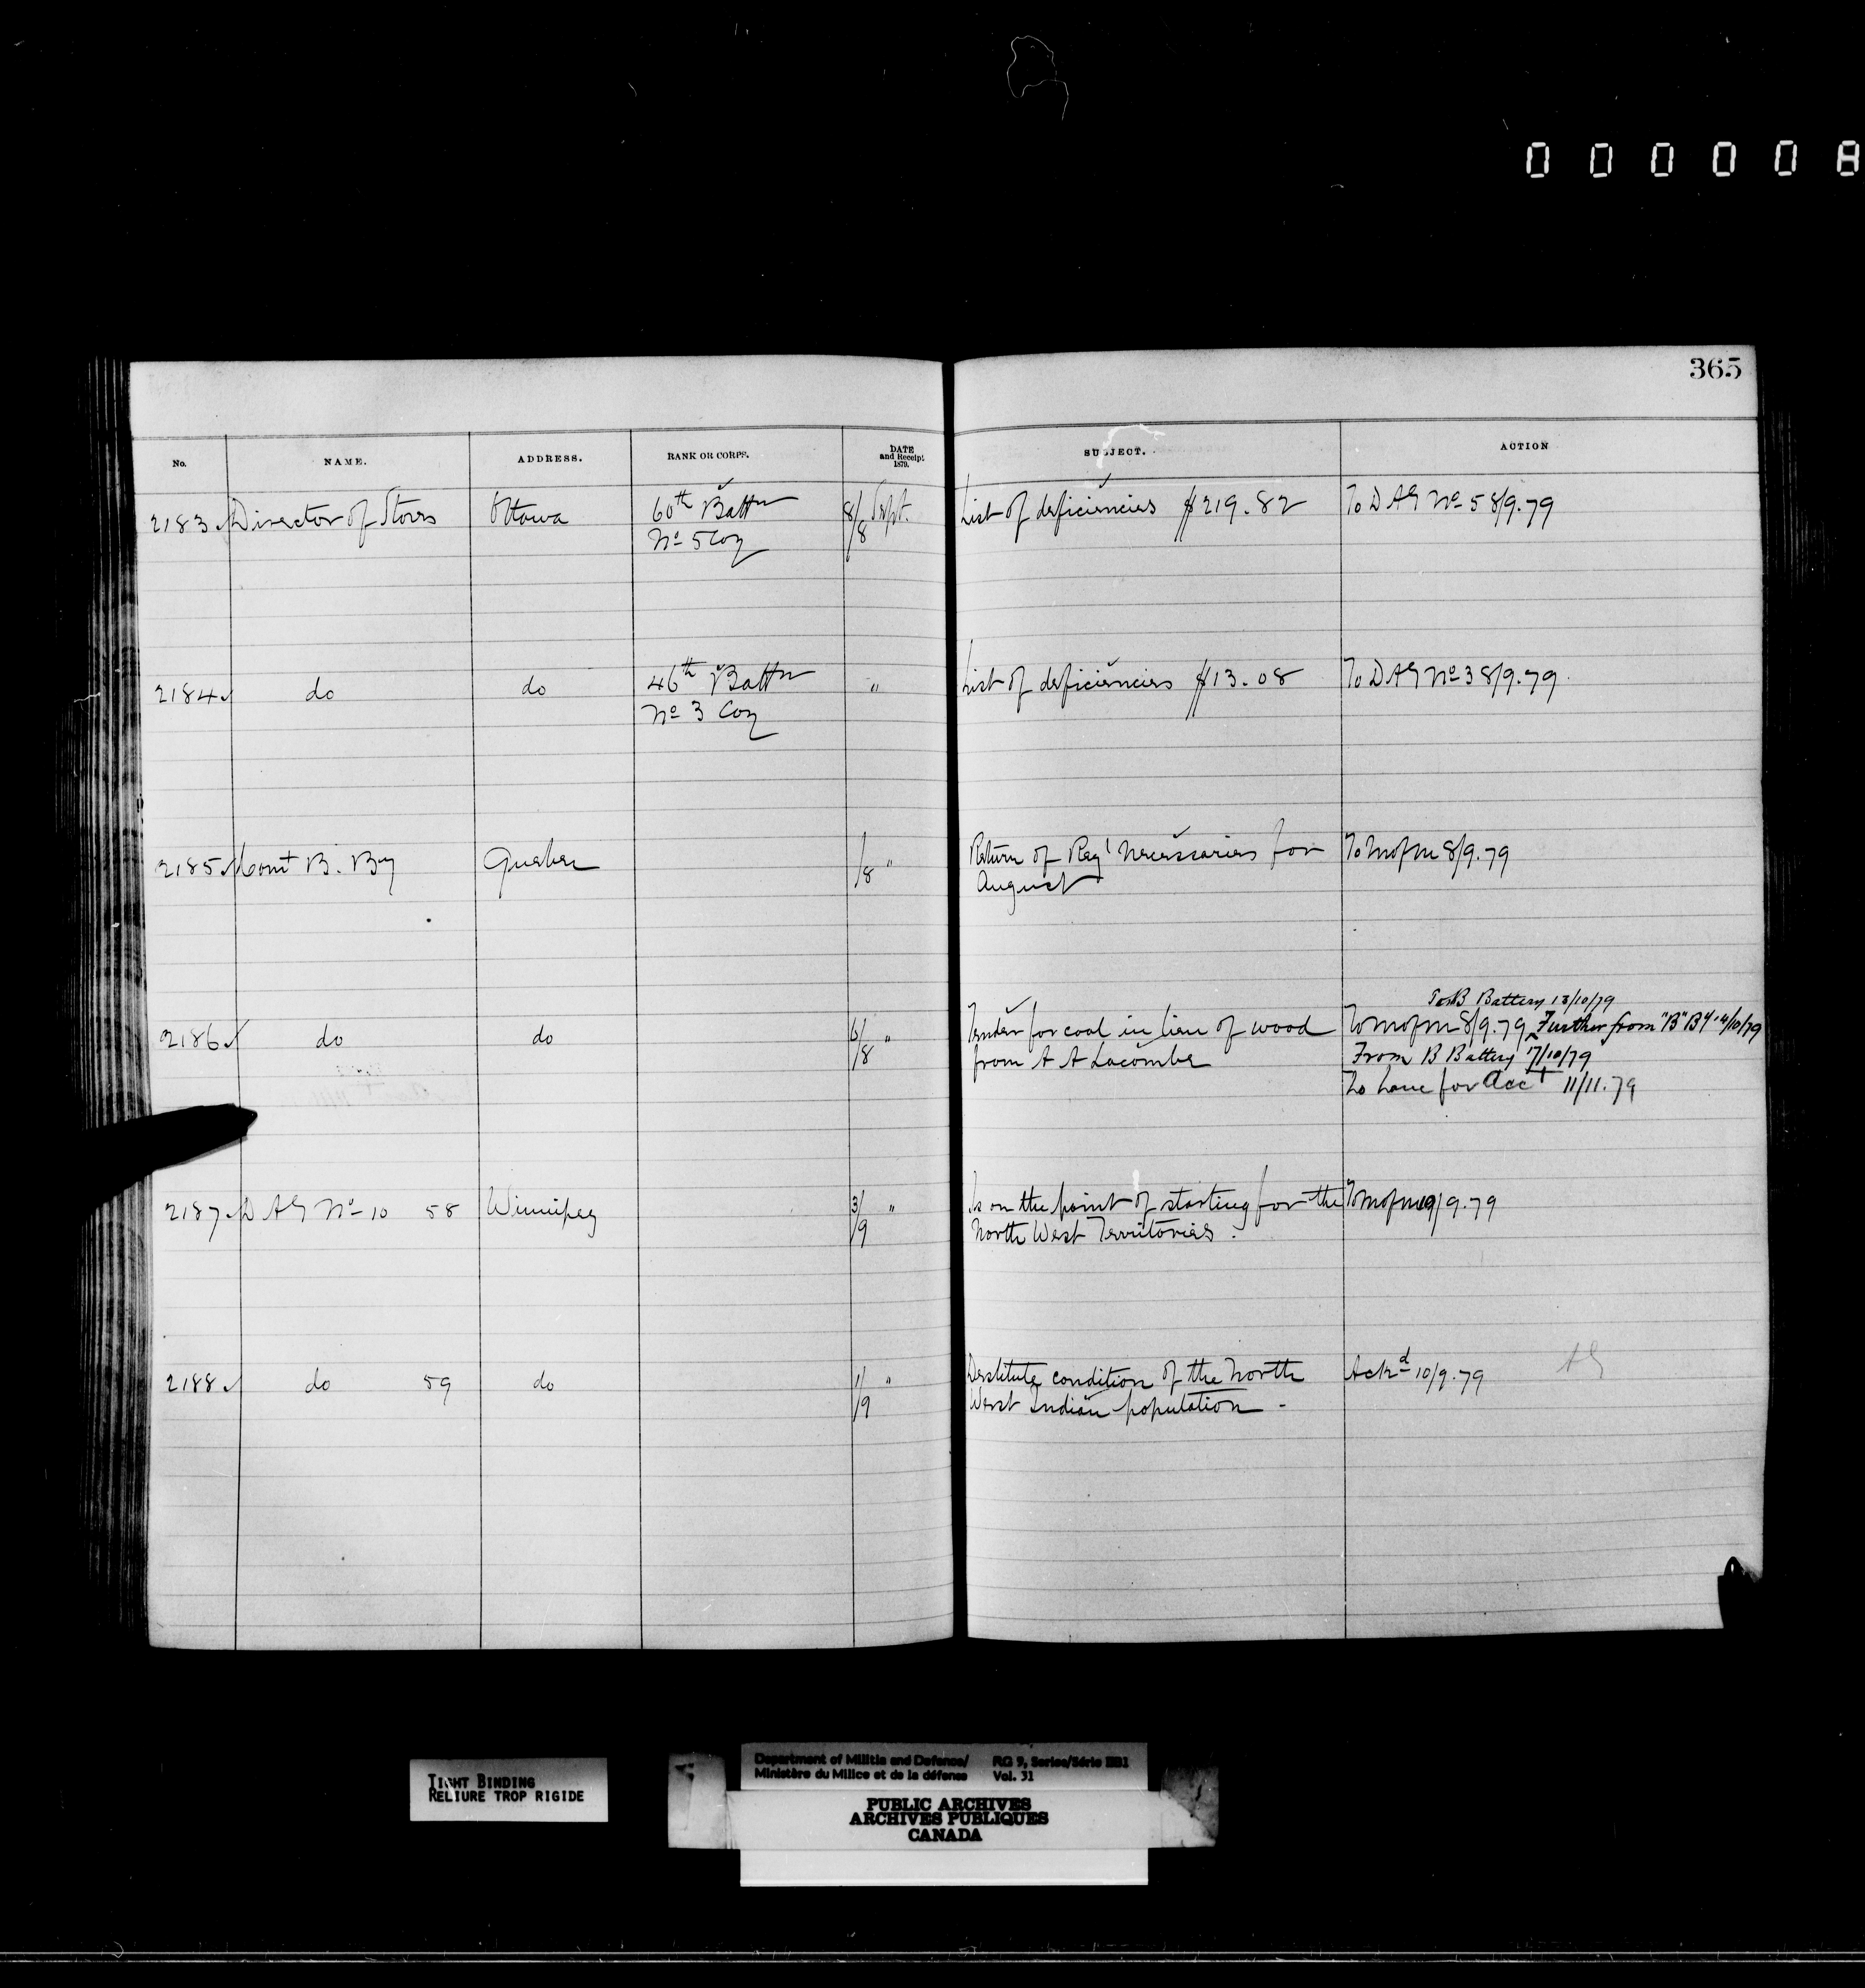 000008
365
No. NAME. ADDRESS. RANK OR CORPS. DATE and Receipt 1879. SUBJECT. ACTION
2183 Director of Stores Ottawa 60th Battn 8/8 Sept. List of deficiencies $219.82 To DAG No 5 8/9.79
No 5 Coy
2184 do do 46th Battn " List of deficiencies $13.08 To DAG No 3 8/9.79
No 3 Coy
2185 Comt B. By Quebec /8 " Return of Reg'l Necessaries for To M of M 8/9.79
August
To B Battery 13/10/79
2186 do do 6/8 " Tender for coal in lieu of wood To M of M 8/9.79 Further from "B" By 14/10/79
from A A Lacombe From B Battery 17/10/79
To for Acct 11/11.79
2187 DAG No 10 58 Winnipeg 3/9 " Is on the point of starting for the To M of M 9/9.79
North West Territories.
2188 do 59 do 1/9 " Destitute condition of the North Ackd 10/9.79 AG
West Indian population -
TIGHT BINDING
RELIURE TROP RIGIDE
Department of Militia and Defence/ RG 9, Series/Série IIB1
Ministère du Milice et de la défense Vol. 31
PUBLIC ARCHIVES
ARCHIVES PUBLIQUES
CANADA